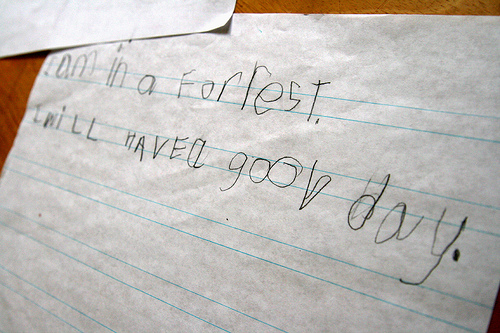 I am in a Forrest.
I WILL HAVE a gooD day.